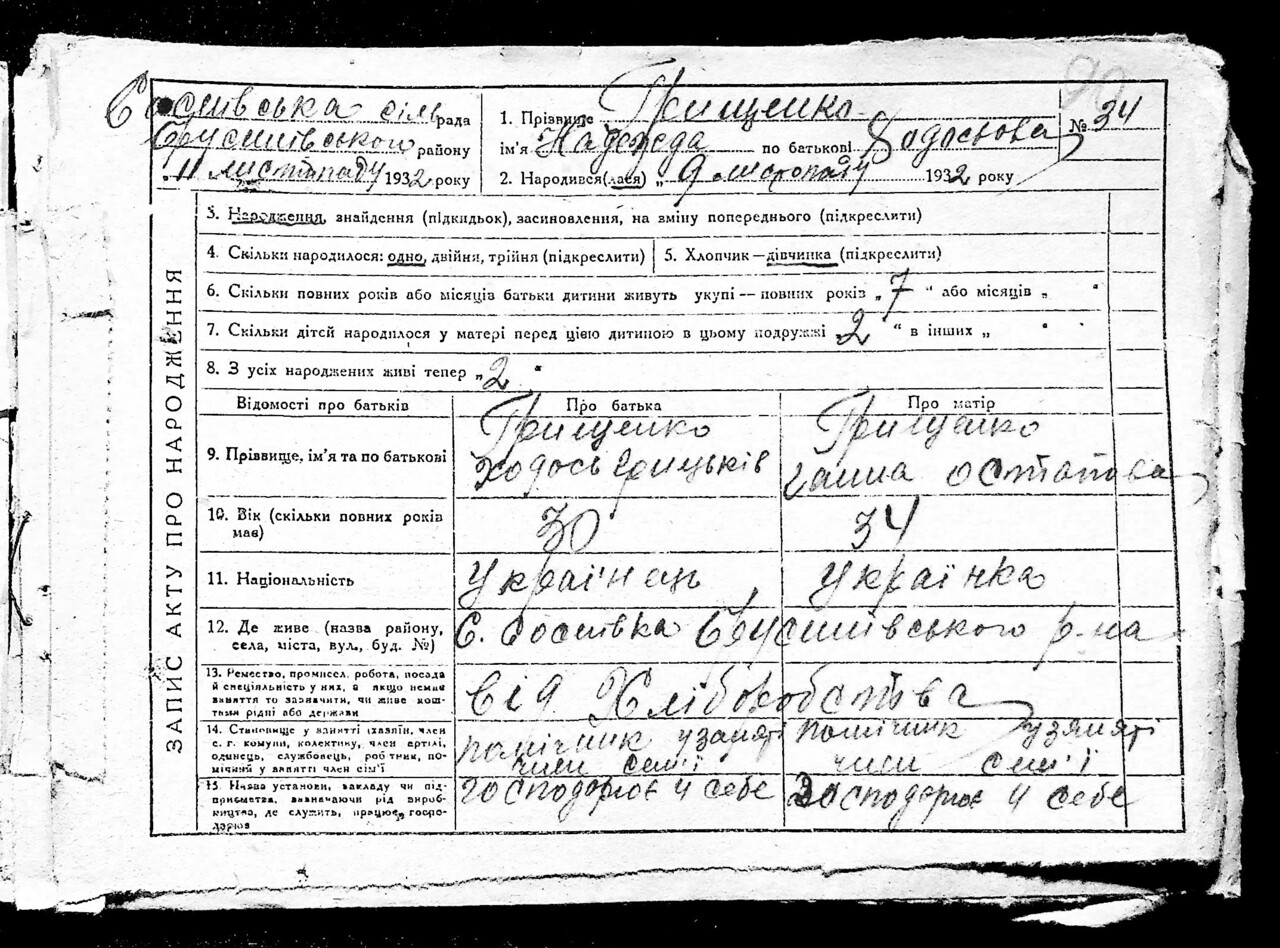 Соснівська сільрада
Брусилівського району
11 листопаду 1932 року
1. Прізвище Грищенко
ім'я Надежда по батькові Ходосьова № 34
2. Народився(лася) „ 9 листопаду 1932 року
ЗАПИС АКТУ ПРО НАРОДЖЕННЯ
3. Народження, знайдення (підкидьок), засиновлення, на зміну попереднього (підкреслити)
4. Скільки народилося: одно, двійня, трійня (підкреслити) 5. Хлопчик—дівчинка (підкреслити)
6. Скільки повних років або місяців батьки дитини живуть укупі—повних років „ 7 “ або місяців „ “
7. Скільки дітей народилося у матері перед цією дитиною в цьому подружжі „ 2 “ в інших „ “
8. З усіх народжених живі тепер „ 2 “
Відомості про батьків Про батька Про матір
9. Прізвище, ім'я та по батькові Грищенко Ходось Грицьків Грищенко Ганна Остапова
10. Вік (скільки повних років має) 30 34
11. Національність Українець Українка
12. Де живе (назва району, села, міста, вул., буд. №) С. Соснівка Брусилівського р-на
13. Ремество, промисел, робота, посада й спеціяльність у них, а якщо немає заняття то зазначити, чи живе коштами рідні або держави від Хліборобства
14. Становище у занятті (хазяїн, член с. г. комуни, колективу, член артілі, одинець, службовець, робітник, помічний у занятті член сім'ї помічник узаняті член сем'ї помічник узаняті член сем'ї
15. Назва установи, закладу чи підприємства, визначаючи рід виробництва, де служить, працює, господарює господарює у себе господарює у себе